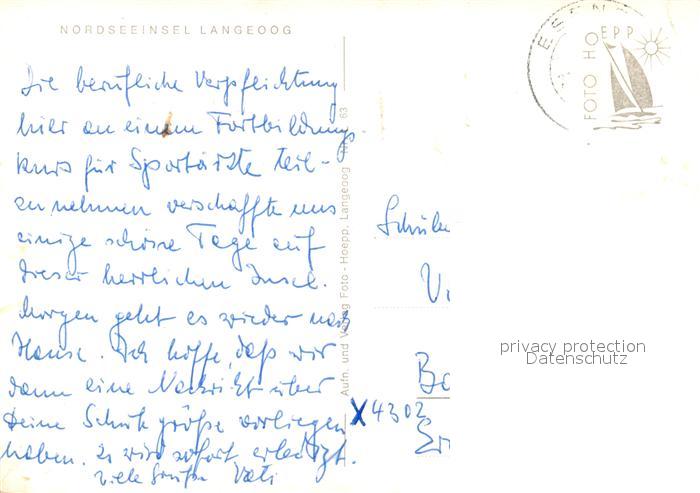 NORDSEEINSEL LANGEOOG
Die berufliche Verpflichtung
hier an einem Fortbildungs-
kurs für Sportärzte teil-
zunehmen verschaffte uns
einige schöne Tage auf
dieser herrlichen Insel.
Morgen geht es wieder nach
Hause. Ich hoffe, daß wir
dann eine Nachricht über
Deine Schuhgröße vorliegen
haben. Es wird sofort erledigt.
Viele Grüße Vati
Aufn. und Verlag Foto - Hoepp, Langeoog 63
ESEN
FOTO HOEPP
Schüle
Vi
Bo
X 4302
privacy protection
Datenschutz